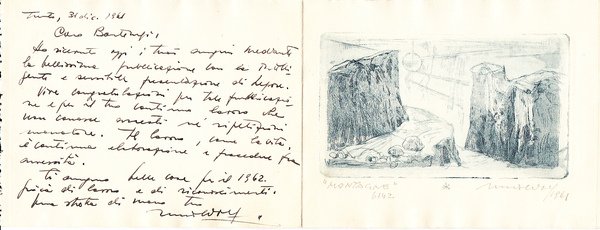 Trento, 31 dic. 1961
Caro Bartolozzi,
Ho ricevuto oggi i tuoi auguri mediante
la bellissima pubblicazione con la intelli-
gente e sensibile presentazione di
Vive congratulazioni per tale pubblicazio
ne e per il tuo continuo lavoro che
non conosce arresti né ripetizioni
Il lavoro, come la vita,
è continua elaborazione e procedere fra
avversità.
Ti auguro belle cose per il 1962
di lavoro e di riconoscimenti.
Una stretta di mano tuo
"MONTAGNE"
1961